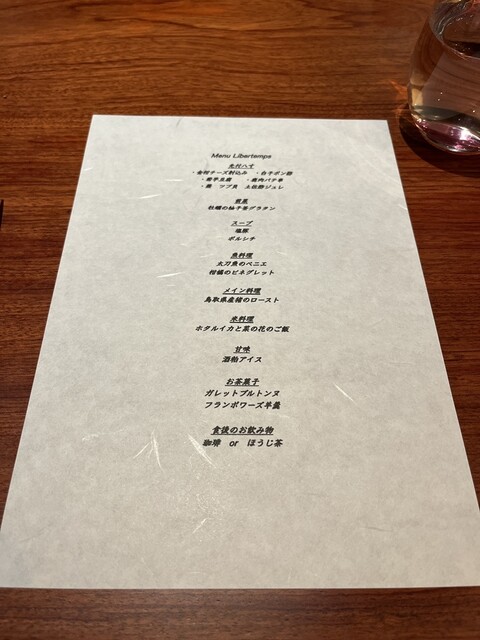 Menu Libertemps
先付八寸
・金柑チーズ射込み ・白子ポン酢
・鹿肉パテ串
・ツブ貝 土佐酢ジュレ
牡蠣の柚子茶グラタン
スープ
塩豚
ボルシチ
魚料理
太刀魚のベニエ
柑橘のビネグレット
メイン料理
鳥取県産猪のロースト
米料理
ホタルイカと菜の花のご飯
甘味
酒粕アイス
お茶菓子
ガレットブルトンヌ
フランボワーズ羊羹
食後のお飲み物
珈琲 or ほうじ茶